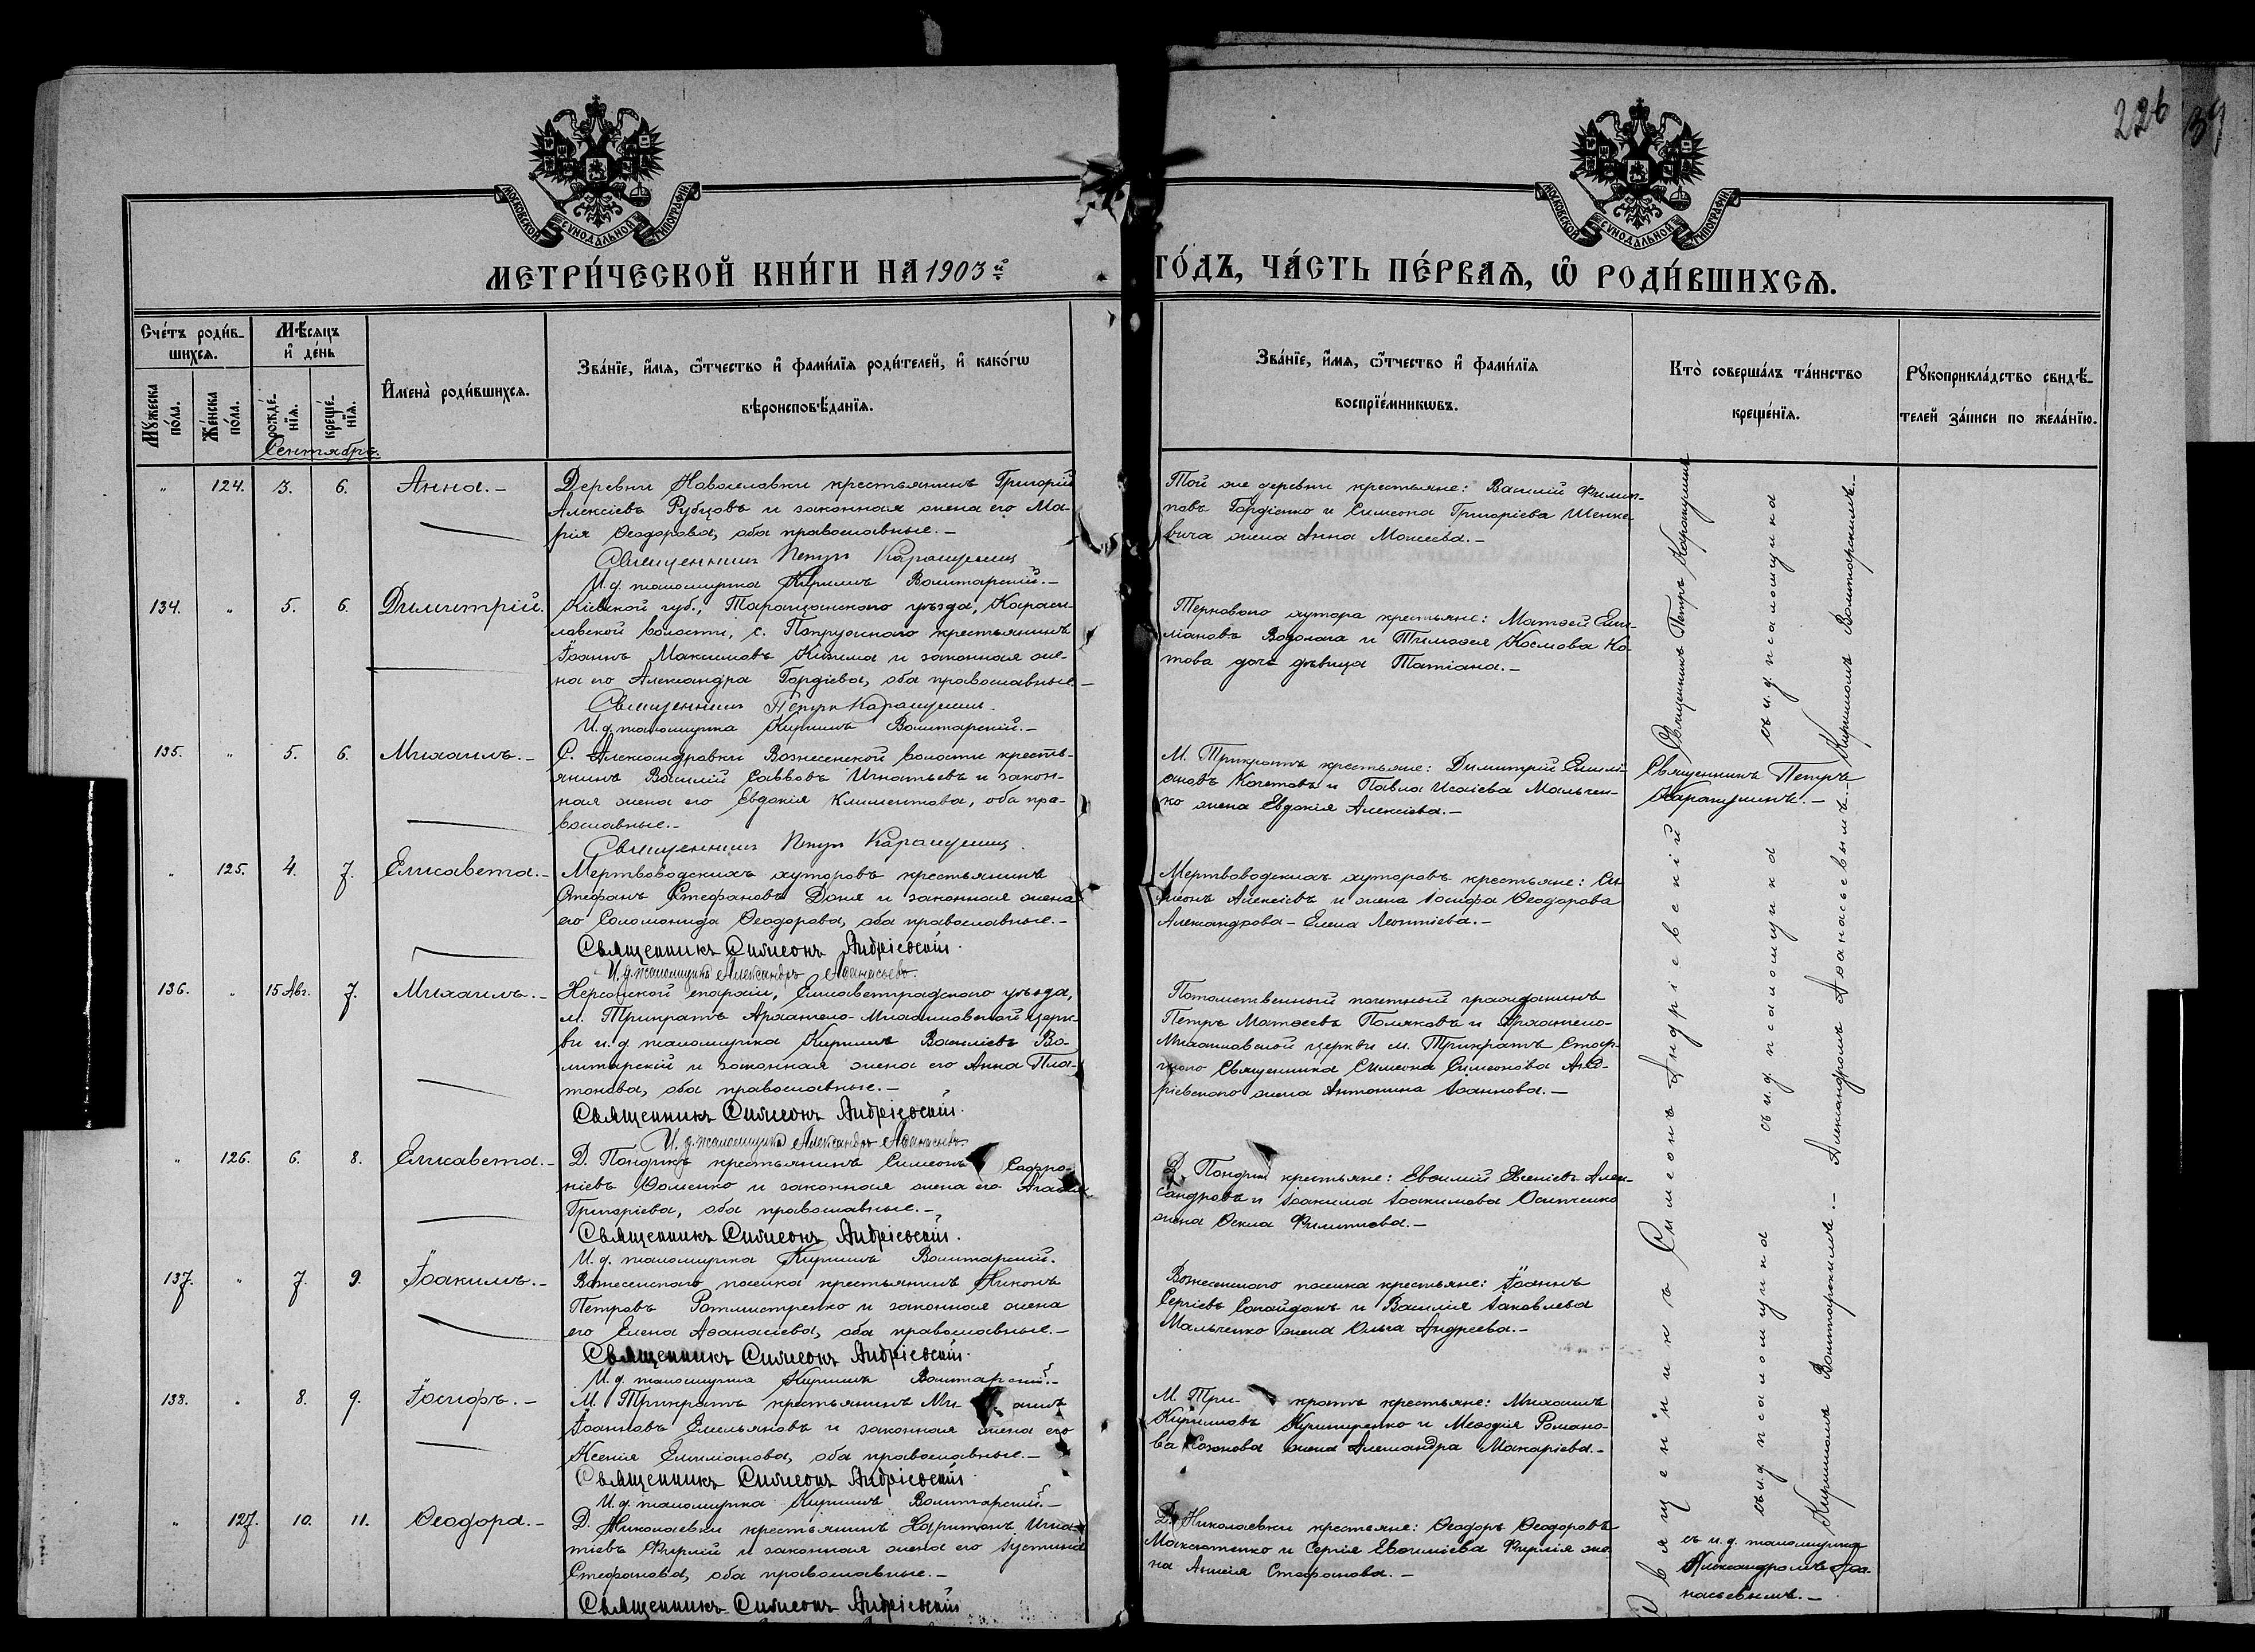 226
39
МОСКОВСКОЙ СѴНОДАЛЬНОЙ ТИПОГРАФІИ
МОСКОВСКОЙ СѴНОДАЛЬНОЙ ТИПОГРАФІИ
МЕТРИ́ЧЕСКОЙ КНИ́ГИ НА 1903й ГО́ДЪ, ЧА́СТЬ ПЕ́РВАЯ, Ѿ РОДИ́ВШИХСЯ.
Сче́тъ роди́в-
шихся.
Мѣ́сяцъ
и҆ де́нь
Му́жеска по́ла.
Же́нска по́ла.
рожде́-
нїя.
креще́-
нїя.
И҆мена̀ роди́вшихся.
Зва́нїе, и҆́мя, ѻ҆́тчество и҆ фами́лїя роди́телей, и҆ како́гѡ
вѣроисповѣ́данїя.
Зва́нїе, и҆́мя, ѻ҆́тчество и҆ фами́лїя
воспрїе́мникѡвъ.
Кто̀ соверша́лъ та́инство
креще́нїя.
Рꙋкоприкла́дство свидѣ́-
телей за́писи по жела́нїю.
Сентябрь.
" 124. 3. 6. Анна.-
Деревни Новоселовки крестьянинъ Григорій
Алексіевъ Рубцовъ и законная жена его Ма-
рія Ѳеодорова, оба православные.-
Священникъ Петръ Карапушинъ
И. д. псаломщика Кириллъ Волитарскій.-
Той же деревни крестьяне: Василій Филип-
повъ Гордіенко и Симеона Григоріева Шенке-
вича жена Анна Моисеева.-
134. " 5. 6. Димитрій.
Кіевской губ., Таращанскаго уѣзда,
волости, с. крестьянинъ
Іоаннъ Максимовъ Кизима и законная же-
на его Александра Гордіева, оба православные.-
Священникъ Петръ Карапушинъ.
И. д. псаломщика Кириллъ Волитарскій.-
Терноваго хутора крестьяне: Матѳей Еми-
ліановъ Водолага и Тимоѳея Космова Ко-
това дочь дѣвица Татіана.-
135. " 5. 6. Михаилъ.-
С. Александровки Вознесенской волости кресть-
янинъ Василій Савовъ Игнатьевъ и закон-
ная жена его Евдокія Климентова, оба пра-
вославные.-
Священникъ Петръ Карапушинъ.
М. Трикратъ крестьяне: Димитрій Емилі-
ановъ Кочетовъ и Павла Исаіева Мальчен-
ко жена Евдокія Алексіева.-
Священникъ Петръ
Карапушинъ.-
" 125. 4. 7. Елисавета.-
Мертвоводскихъ хуторовъ крестьянинъ
Стефанъ Стефановъ Доня и законная жена
его Соломонида Ѳеодорова, оба православные.-
Священникъ Симеонъ Андріевскій.
И. д. псаломщика Александръ Аѳанасьевъ.
Мертвоводскихъ хуторовъ крестьяне: Си-
меонъ Алексіевъ и жена Іосифа Ѳеодорова
Александрова - Елена Леонтіева.-
136. " 15 Авг. 7. Михаилъ.-
Херсонской епархіи, Елисаветградскаго уѣзда,
м. Трикратъ Архангело-Михаиловской церк-
ви и. д. псаломщика Кириллъ Василіевъ Во-
литарскій и законная жена его Анна Пла-
тонова, оба православные.-
Священникъ Симеонъ Андріевскій.
И. д. псаломщика Александръ Аѳанасьевъ.
Потомственный почетный гражданинъ
Петръ Матѳеевъ Поляковъ и Архангело-
Михаиловской церкви м. Трикратъ Стар-
шаго Священника Симеона Симеонова Анд-
ріевскаго жена Антонина Іоаннова.-
" 126. 6. 8. Елисавета.-
Д. Пондикъ крестьянинъ Симеонъ Софро-
ніевъ Ѳоменко и законная жена его Агаѳія
Григоріева, оба православные.-
Священникъ Симеонъ Андріевскій.
И. д. псаломщика Кириллъ Волитарскій.
крестьяне: Евѳимій Евгеніевъ Алек-
сандровъ и Іоакима Іоакимова Осипченко
жена Ѳекла Филиппова.-
137. " 7. 9. Іоакимъ.-
Вознесенскаго поселка крестьянинъ Никонъ
Петровъ Ротмистренко и законная жена
его Елена Аѳанасіева, оба православные.-
Священникъ Симеонъ Андріевскій.
И. д. псаломщика Кириллъ Волитарскій.-
Вознесенскаго поселка крестьяне: Іоаннъ
Сергіевъ Согайдакъ и Василія Іаковлева
Мальченко жена Ольга Андреева.-
138. " 8. 9. Іосифъ.-
М. Трикратъ крестьянинъ Михаилъ
Іоанновъ Емельяновъ и законная жена его
Ксенія Емиліанова, оба православные.-
Священникъ Симеонъ Андріевскій.
И. д. псаломщика Кириллъ Волитарскій.-
М. Трикратъ крестьяне: Михаилъ
Кирилловъ и Меѳодія Романо-
ва Созонова жена Александра Макаріева.-
" 127. 10. 11. Ѳеодора.-
Д. Николаевки крестьянинъ Харитонъ Игна-
тіевъ Фирлій и законная жена его Іустина
Стефанова, оба православные.-
Священникъ Симеонъ Андріевскій
Д. Николаевки крестьяне: Ѳеодоръ Ѳеодоровъ
и Сергія Евѳиміева Фирлія же-
на Анисія Стефанова.-
Священникъ Петръ Карапушинъ
съ и. д. псаломщика
Кирилломъ Волитарскимъ.-
Священникъ Симеонъ Андріевскій
съ и. д. псаломщика
Александромъ Аѳанасьевымъ.-
съ и. д. псаломщика
Кирилломъ Волитарскимъ.-
съ и. д. псаломщика
Александромъ Аѳа-
насьевымъ.-